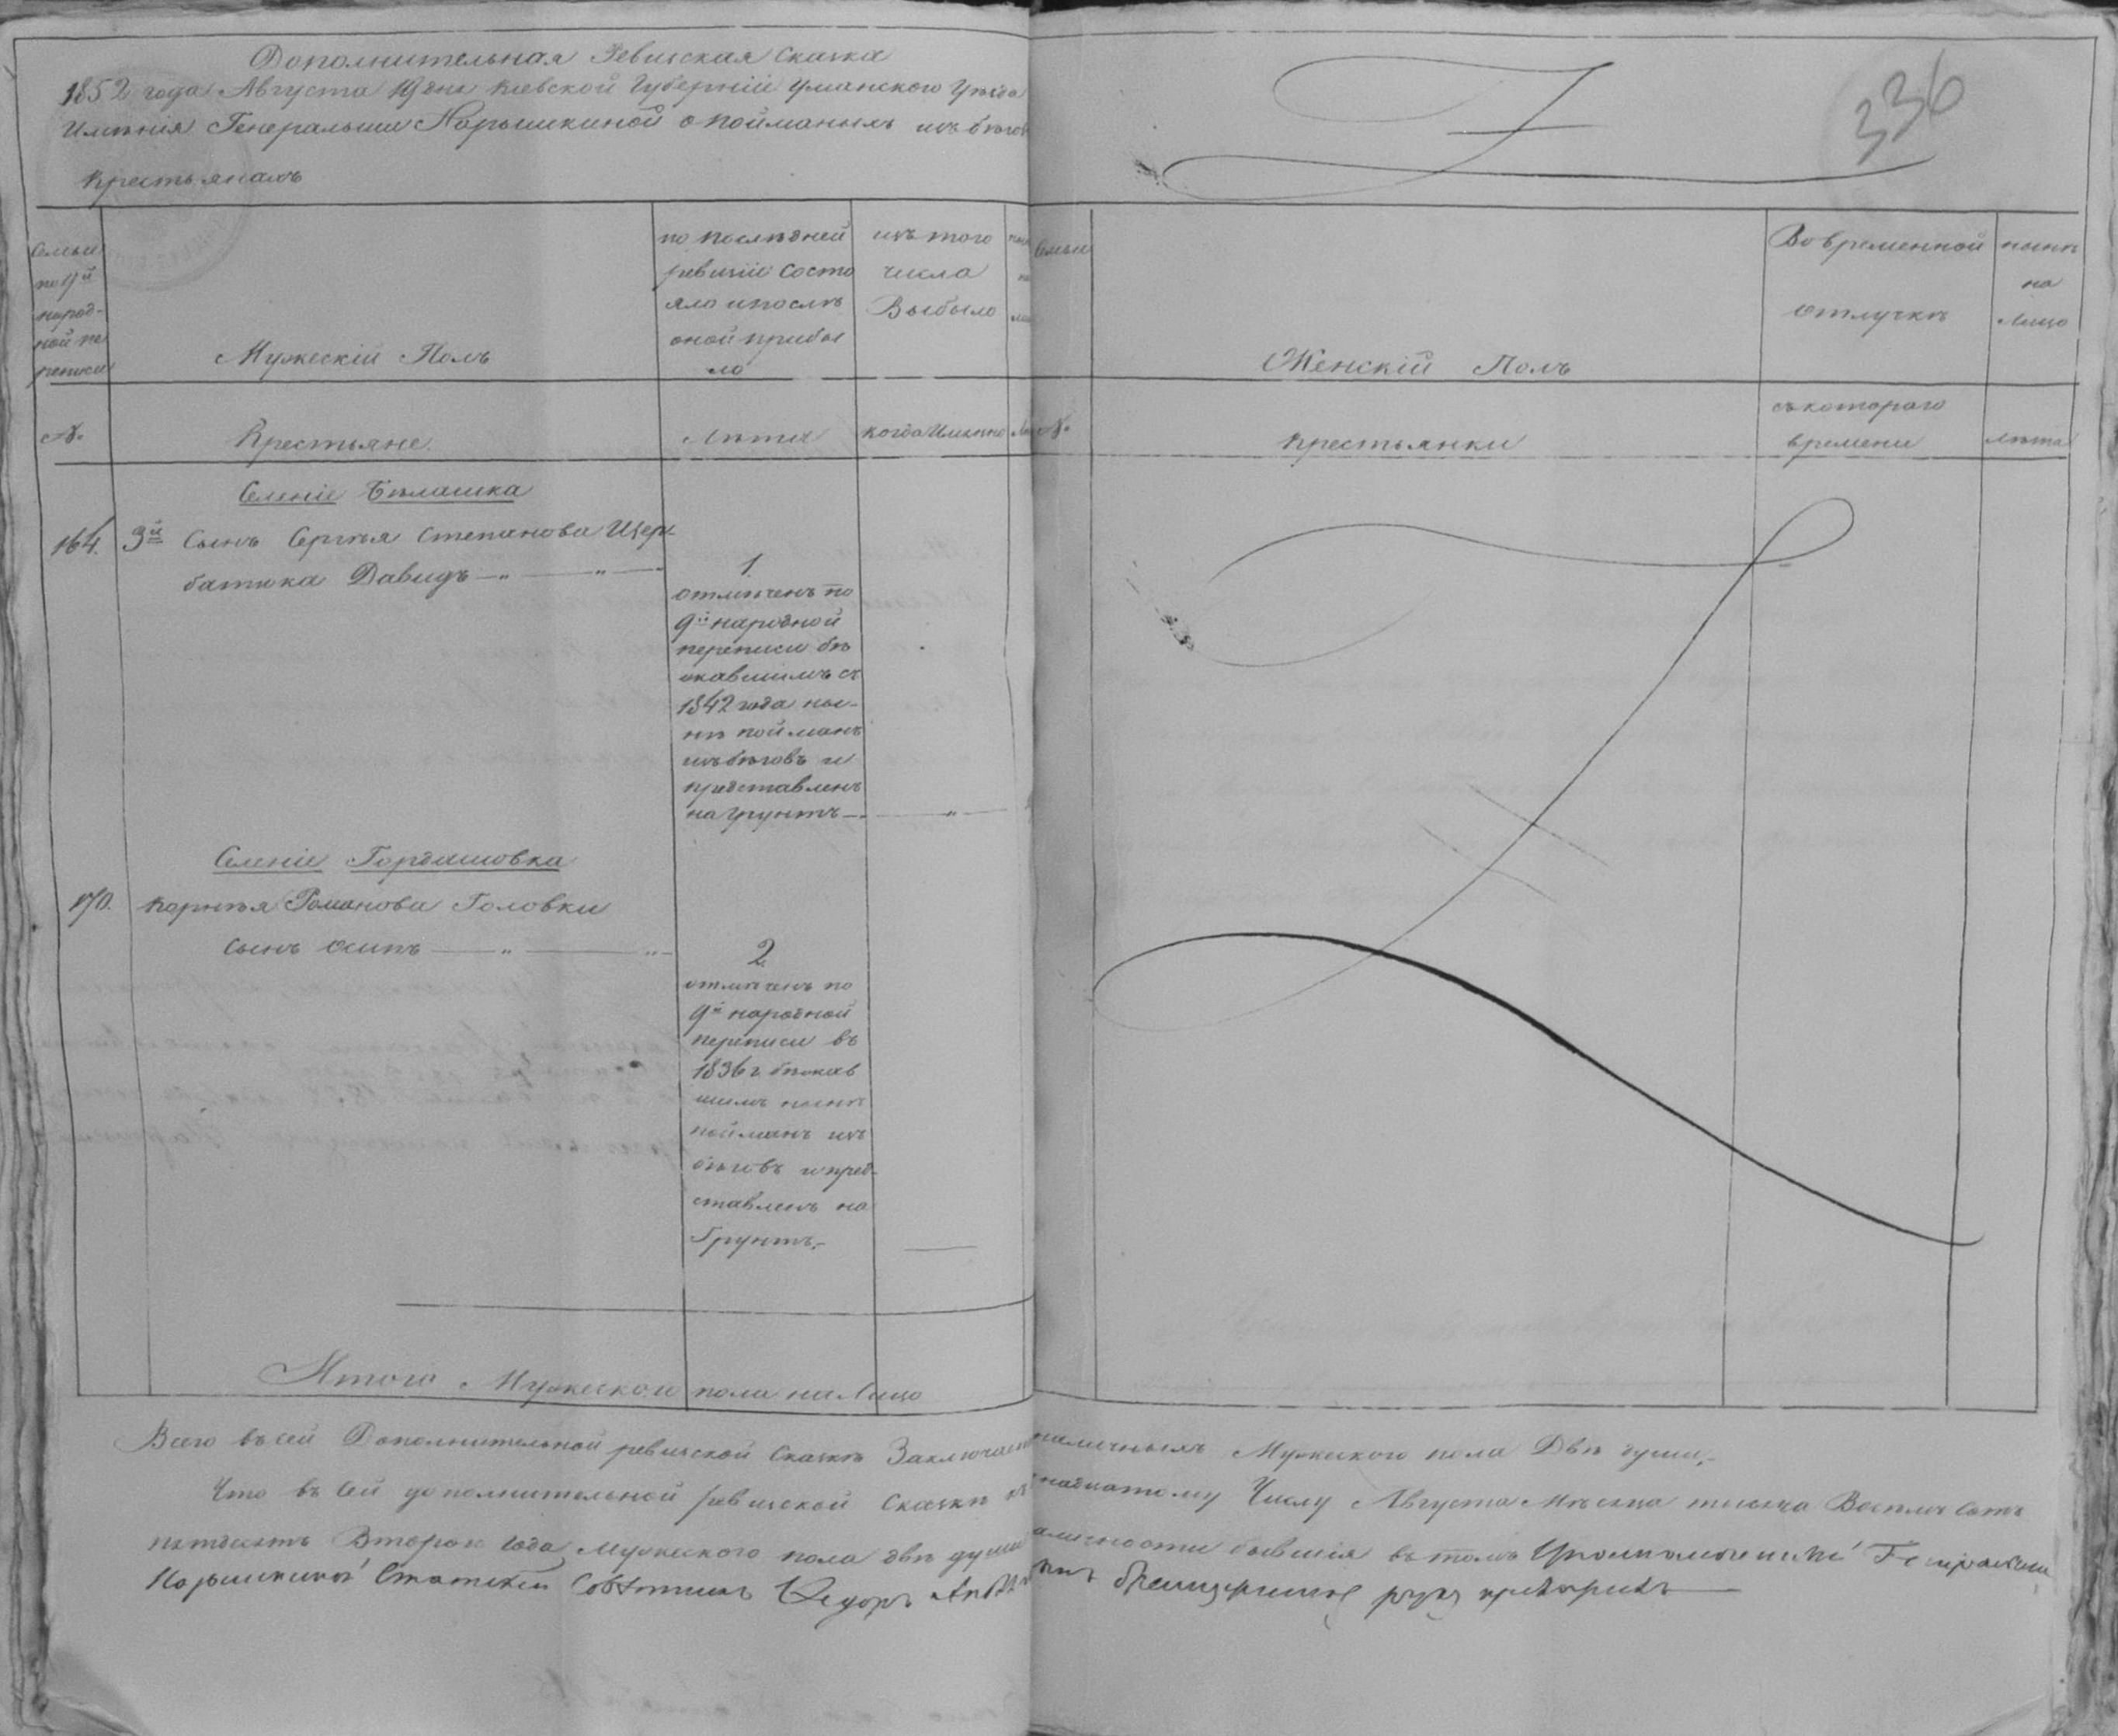 Дополнительная Ревизская Сказка
1852 года Августа 19 дня Киевской Губерніи Уманского Уѣзда
Имѣнія Генеральши Нарышкиной о пойманыхъ изъ бѣговъ
Крестьянахъ
336
Семьи
по 9й
народ-
ной пе
реписи
Мужескій Полъ
по послѣдней
ревизіи состо
яло и послѣ
оной прибы
ло
изъ того
числа
Выбыло
Семьи
Женскій Полъ
Во временной
отлучкѣ
нынѣ
на
Лицо
№
Крестьяне
Лѣта
когда Именно
№
Крестьянки
съ котораго
времени
лѣта
Селеніе Бѣлашка
164. 3й Сынъ Сергѣя Степанова Щер-
батюка Давидъ —"— "—
1.
отмѣченъ по
9й народной
переписи бѣ
жавшимъ съ
1842 года ны-
нѣ пойманъ
изъ бѣговъ и
представленъ
на грунтъ —
Селеніе Гордашовка
170. Корнѣя Романова Головки
Сынъ Осипъ —"— "—
2
отмѣченъ по
9й народной
переписи въ
1836 г. бѣжав
шимъ нынѣ
пойманъ изъ
бѣговъ и пред-
ставленъ на
Грунтъ,-
Итого Мужескаго пола на Лицо
Всего въ сей Дополнительной ревизской Сказкѣ Заключается наличныхъ Мужескаго пола Двѣ души,-
Что въ Сей дополнительной ревизской Сказкѣ надцатому Числу Августа Мѣсяца тысяча Восемь Сотъ
пятдесятъ Втораго года Мужескаго пола двѣ души бывшія въ томъ Уполномоченный Генеральши
Нарышкиной Статскій Совѣтникъ Федоръ руку приложилъ